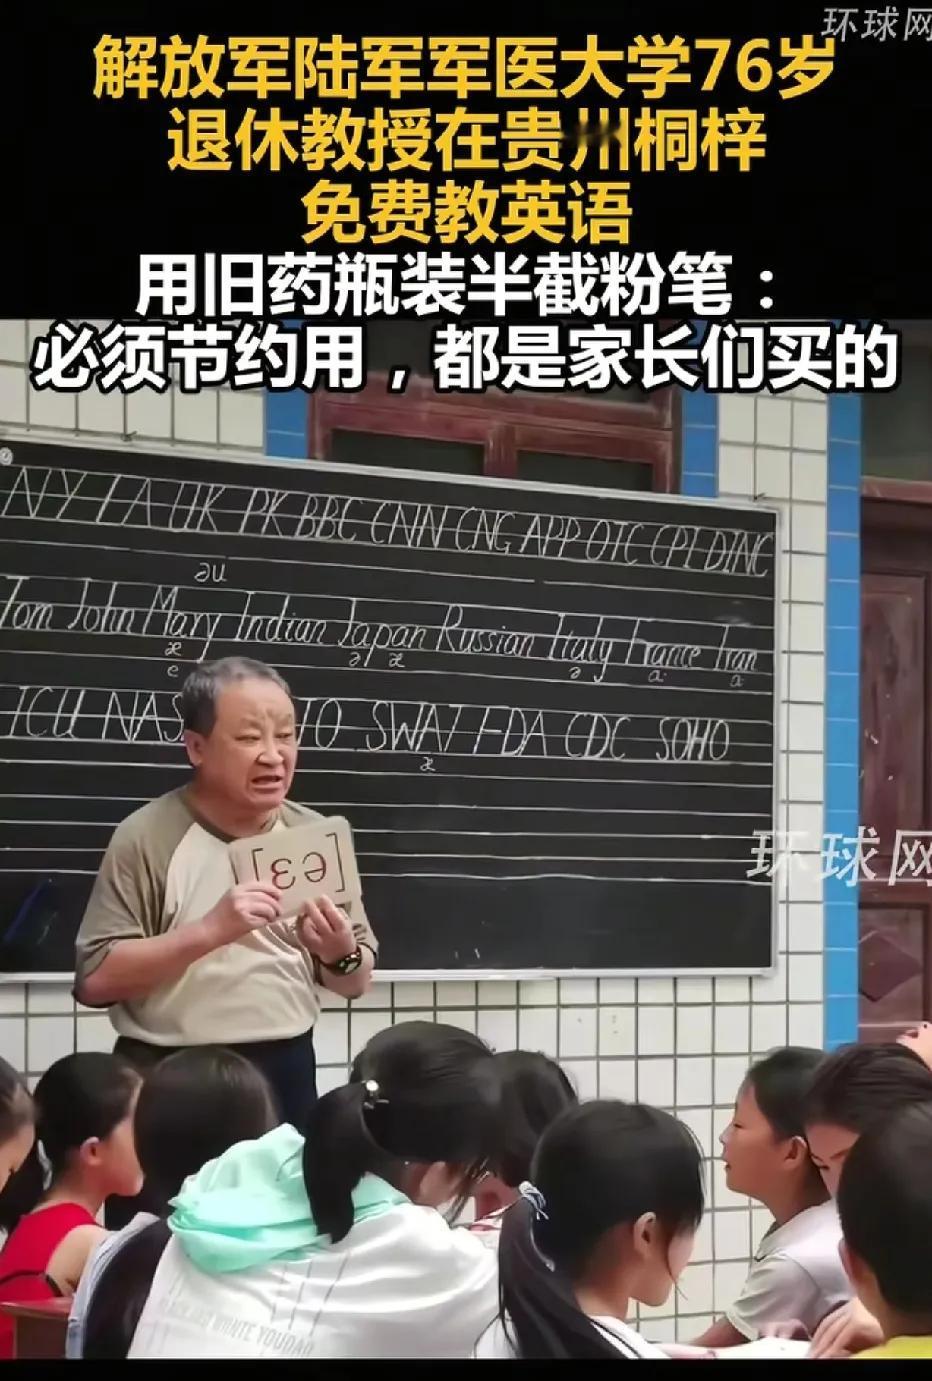 环球网
解放军陆军军医大学76岁
退休教授在贵州桐梓
免费教英语
用旧药瓶装半截粉笔：
必须节约用，都是家长们买的
NY LA UK PK BBC CNN CNG APP OTC CPI DINC
əu
Tom John Mary Indian Japan Russian Italy France Iran
æ ə æ ə a: a:
e
ICU NAS TO SWAT FDA CDC SOHO
æ
环球网
[ɛə]